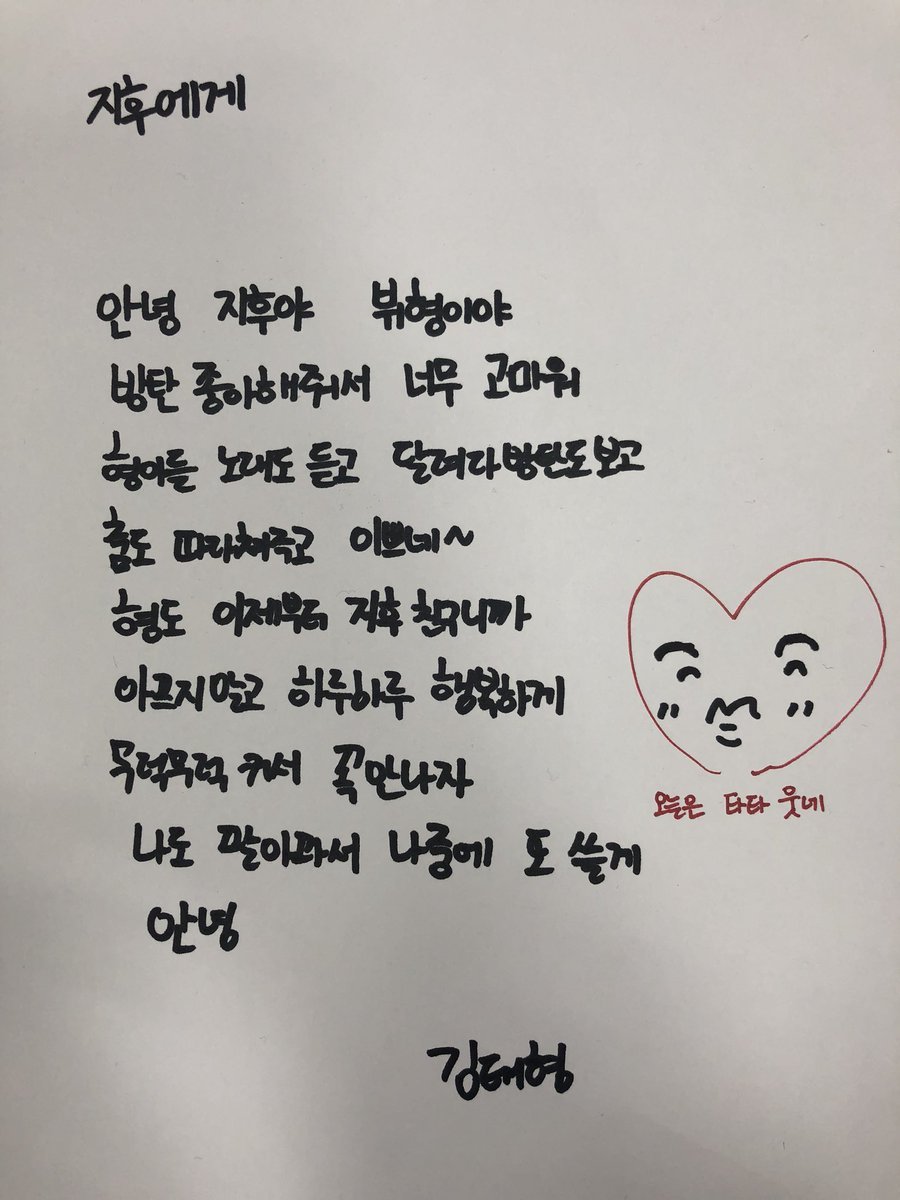 지후에게
안녕 지후야 뷔형이야
방탄 좋아해줘서 너무 고마워
형아들 노래도 듣고 달려라방탄도보고
춤도 따라해주고 이쁘네~
형도 이제부터 지후 친구니까
아프지말고 하루하루 행복하게
무럭무럭 커서 꼭만나자
나도 말아과서 나중에 또 쓸게
안녕
김태형
오늘은 타타 웃네